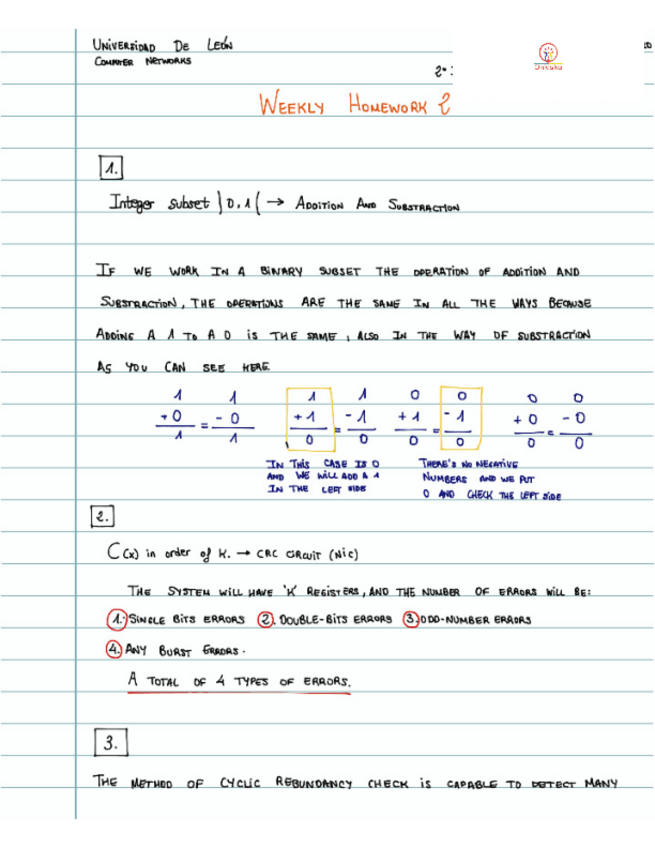 UNIVERSIDAD DE LEÓN
COMPUTER NETWORKS
2º
WEEKLY HOMEWORK 2
1.
Integer subset )0,1( → ADDITION AND SUBSTRACTION
IF WE WORK IN A BINARY SUBSET THE OPERATION OF ADDITION AND
SUBSTRACTION, THE OPERATIONS ARE THE SAME IN ALL THE WAYS BECAUSE
ADDING A 1 TO A 0 IS THE SAME, ALSO IN THE WAY OF SUBSTRACTION
AS YOU CAN SEE HERE
1 1 1 1 0 0 0 0
+ 0 = - 0 + 1 = - 1 + 1 = - 1 + 0 = - 0
1 1 0 0 0 0 0 0
IN THIS CASE IS 0 THERE'S NO NEGATIVE
AND WE WILL ADD A 1 NUMBERS AND WE PUT
IN THE LEFT SIDE 0 AND CHECK THE LEFT SIDE
2.
C(x) in order of K. → CRC CIRCUIT (NIC)
THE SYSTEM WILL HAVE 'K' REGISTERS, AND THE NUMBER OF ERRORS WILL BE:
1. SINGLE BITS ERRORS 2. DOUBLE-BITS ERRORS 3. ODD-NUMBER ERRORS
4. ANY BURST ERRORS.
A TOTAL OF 4 TYPES OF ERRORS.
3.
THE METHOD OF CYCLIC REDUNDANCY CHECK IS CAPABLE TO DETECT MANY